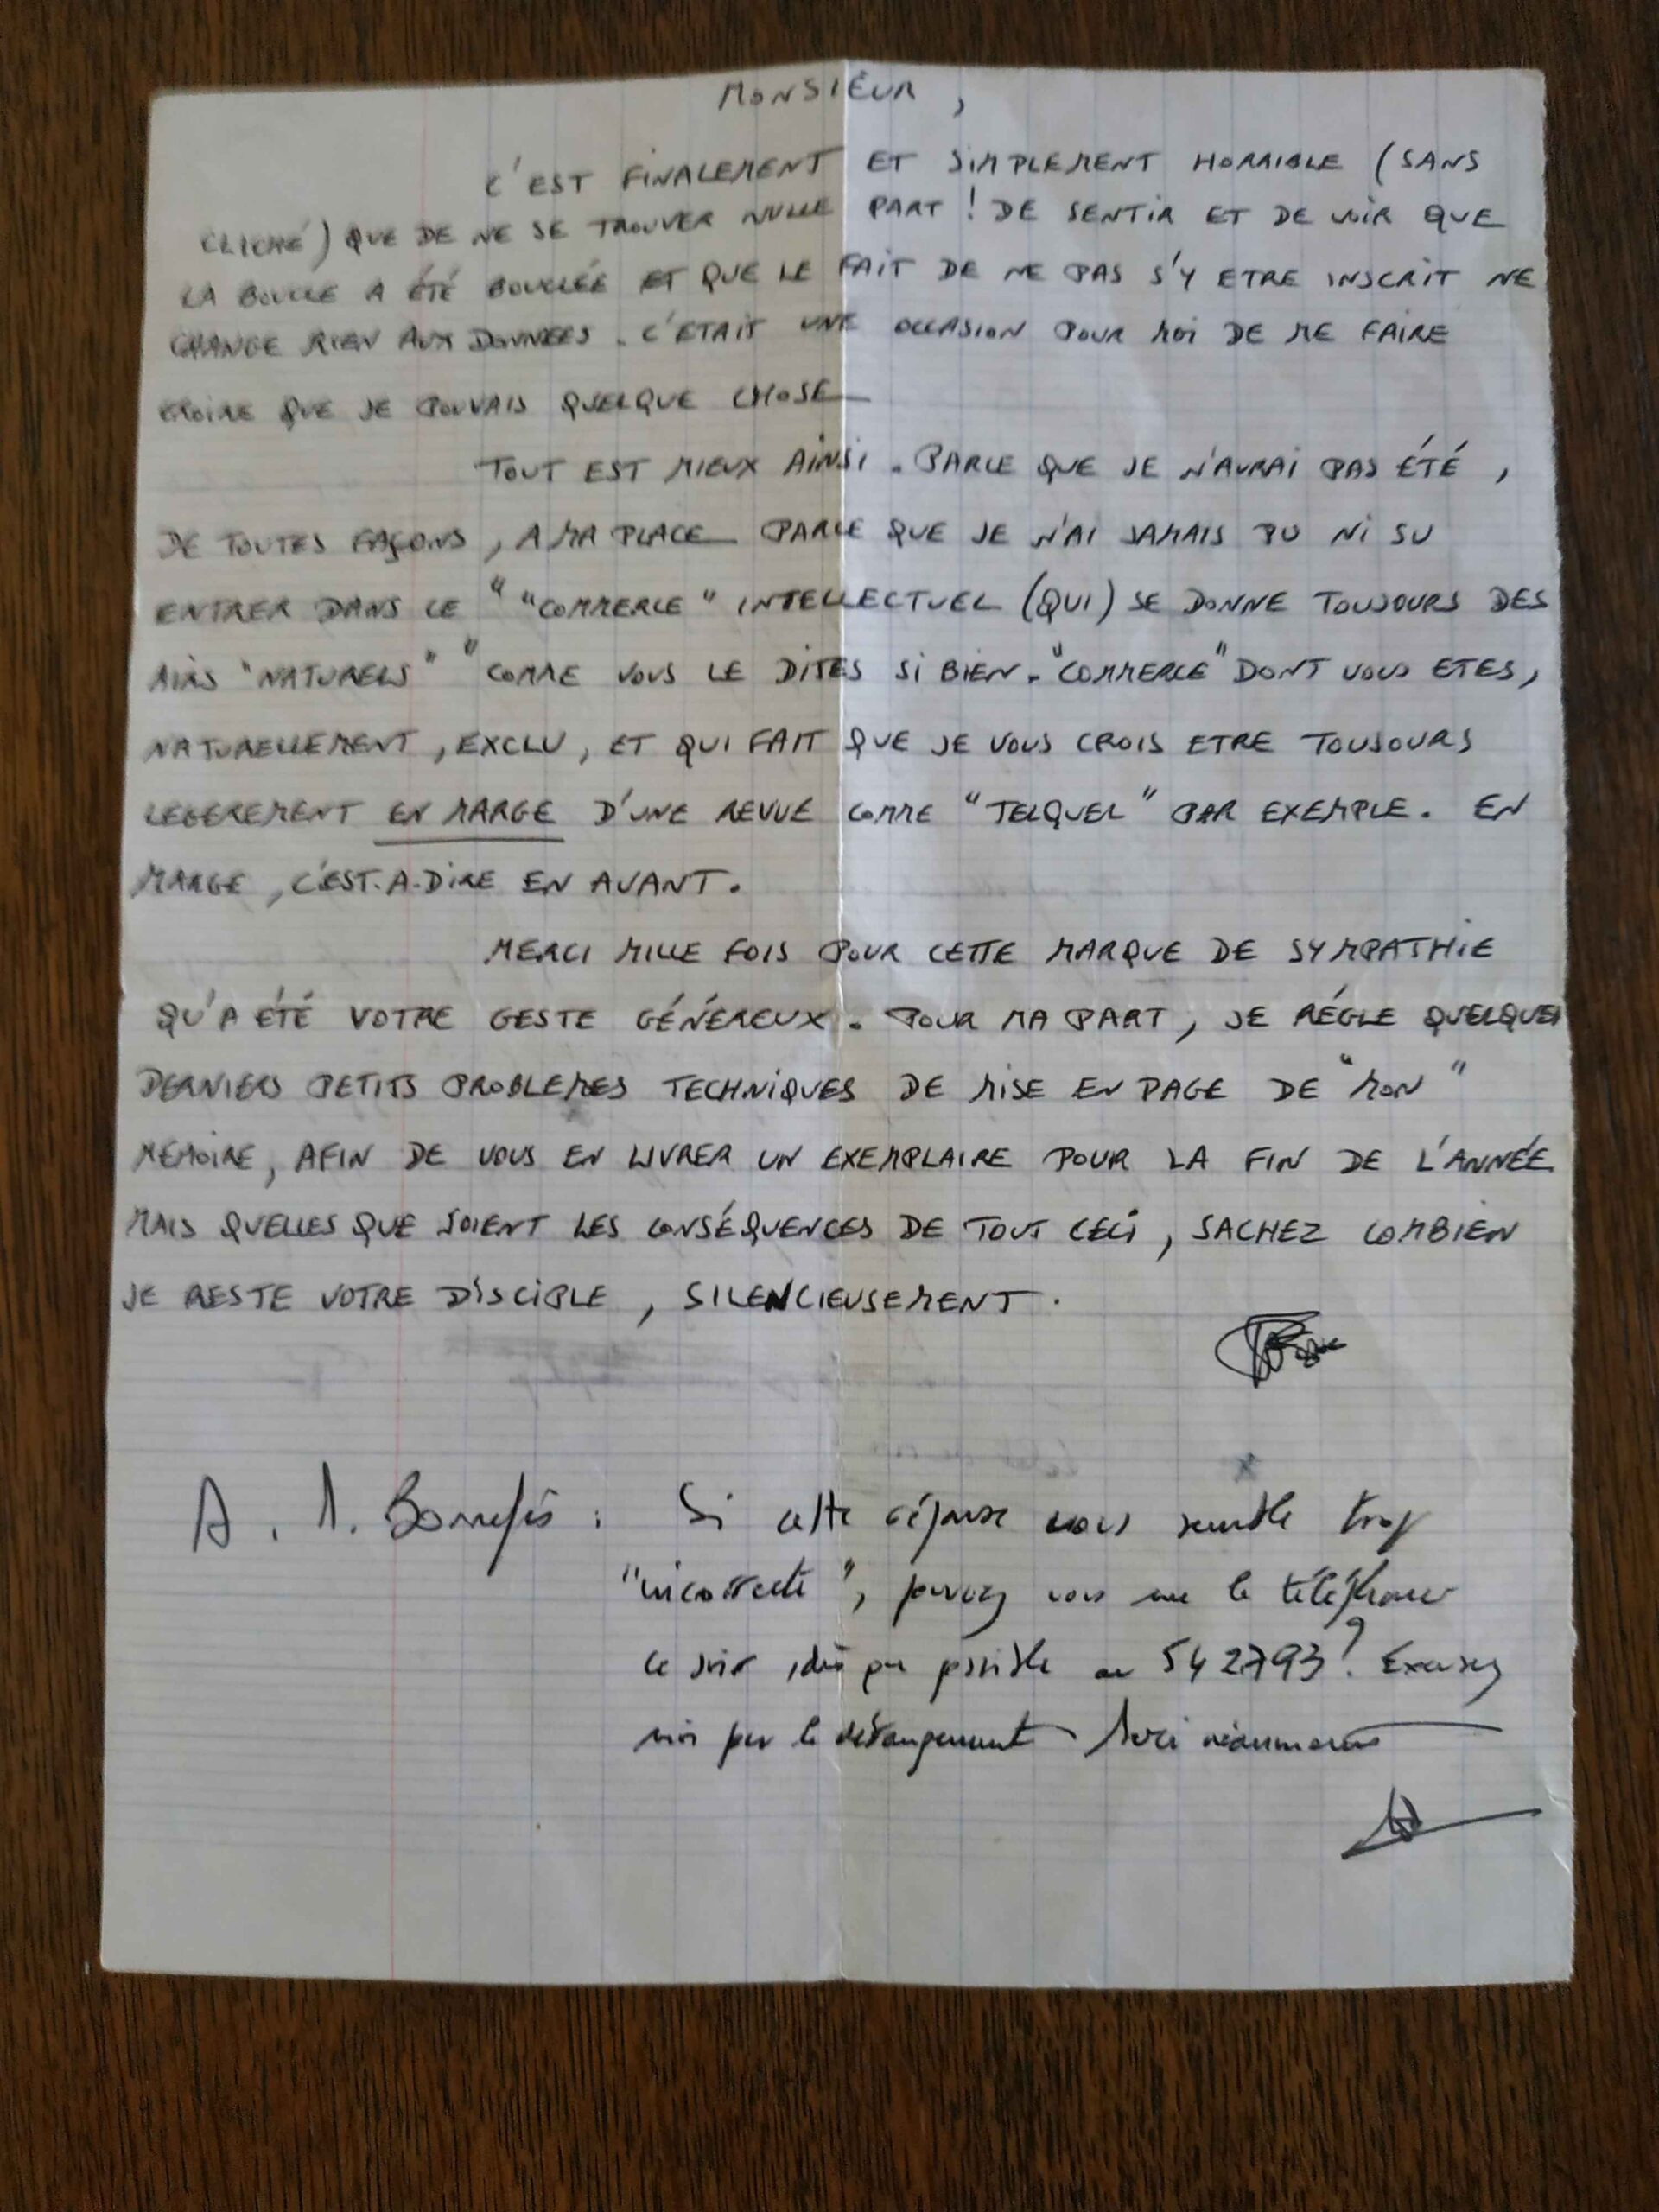 MONSIEUR,
C'EST FINALEMENT ET SIMPLEMENT HORRIBLE (SANS
CLICHÉ) QUE DE NE SE TROUVER NULLE PART ! DE SENTIR ET DE VOIR QUE
LA BOUCLE A ÉTÉ BOUCLÉE ET QUE LE FAIT DE NE PAS S'Y ETRE INSCRIT NE
CHANGE RIEN AUX DONNEES. C'ETAIT UNE OCCASION POUR MOI DE ME FAIRE
CROIRE QUE JE POUVAIS QUELQUE CHOSE_
TOUT EST MIEUX AINSI. PARCE QUE JE N'AURAI PAS ÉTÉ,
DE TOUTES FAÇONS, A MA PLACE_ PARCE QUE JE N'AI JAMAIS PU NI SU
ENTRER DANS CE " "COMMERCE" INTELLECTUEL (QUI) SE DONNE TOUJOURS DES
AIRS "NATURELS" " COMME VOUS LE DITES SI BIEN. "COMMERCE" DONT VOUS ETES,
NATURELLEMENT, EXCLU, ET QUI FAIT QUE JE VOUS CROIS ETRE TOUJOURS
LEGEREMENT EN MARGE D'UNE REVUE COMME "TELQUEL" PAR EXEMPLE. EN
MARGE, C'EST-A-DIRE EN AVANT.
MERCI MILLE FOIS POUR CETTE MARQUE DE SYMPATHIE
QU'A ÉTÉ VOTRE GESTE GÉNÉREUX. POUR MA PART, JE RÉGLE QUELQUES
DERNIERS PETITS PROBLEMES TECHNIQUES DE MISE EN PAGE DE "MON"
MEMOIRE, AFIN DE VOUS EN LIVRER UN EXEMPLAIRE POUR LA FIN DE L'ANNÉE.
MAIS QUELLES QUE SOIENT LES CONSÉQUENCES DE TOUT CECI, SACHEZ COMBIEN
JE RESTE VOTRE DISCIPLE, SILENCIEUSEMENT.
A. M. Bonnefis : Si cette réponse vous semble trop
"incorrecte", pouvez vous me le téléphoner
ce soir, dès que possible au 542793 ? Excusez
moi pour le dérangement_ Merci néanmoins